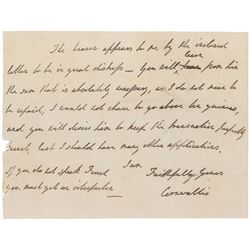 The bearer appears to me by the inclosed
letter to be in great distress – You will learn from him
the sum that is absolutely necessary, as I do not mean to
be repaid, I would not chuse to go above        guineas,
and you will desire him to keep the transaction perfectly
secret, lest I should have many other applications.
If you do not speak French
you must get an interpreter
I am
Faithfully Yours
Cornwallis